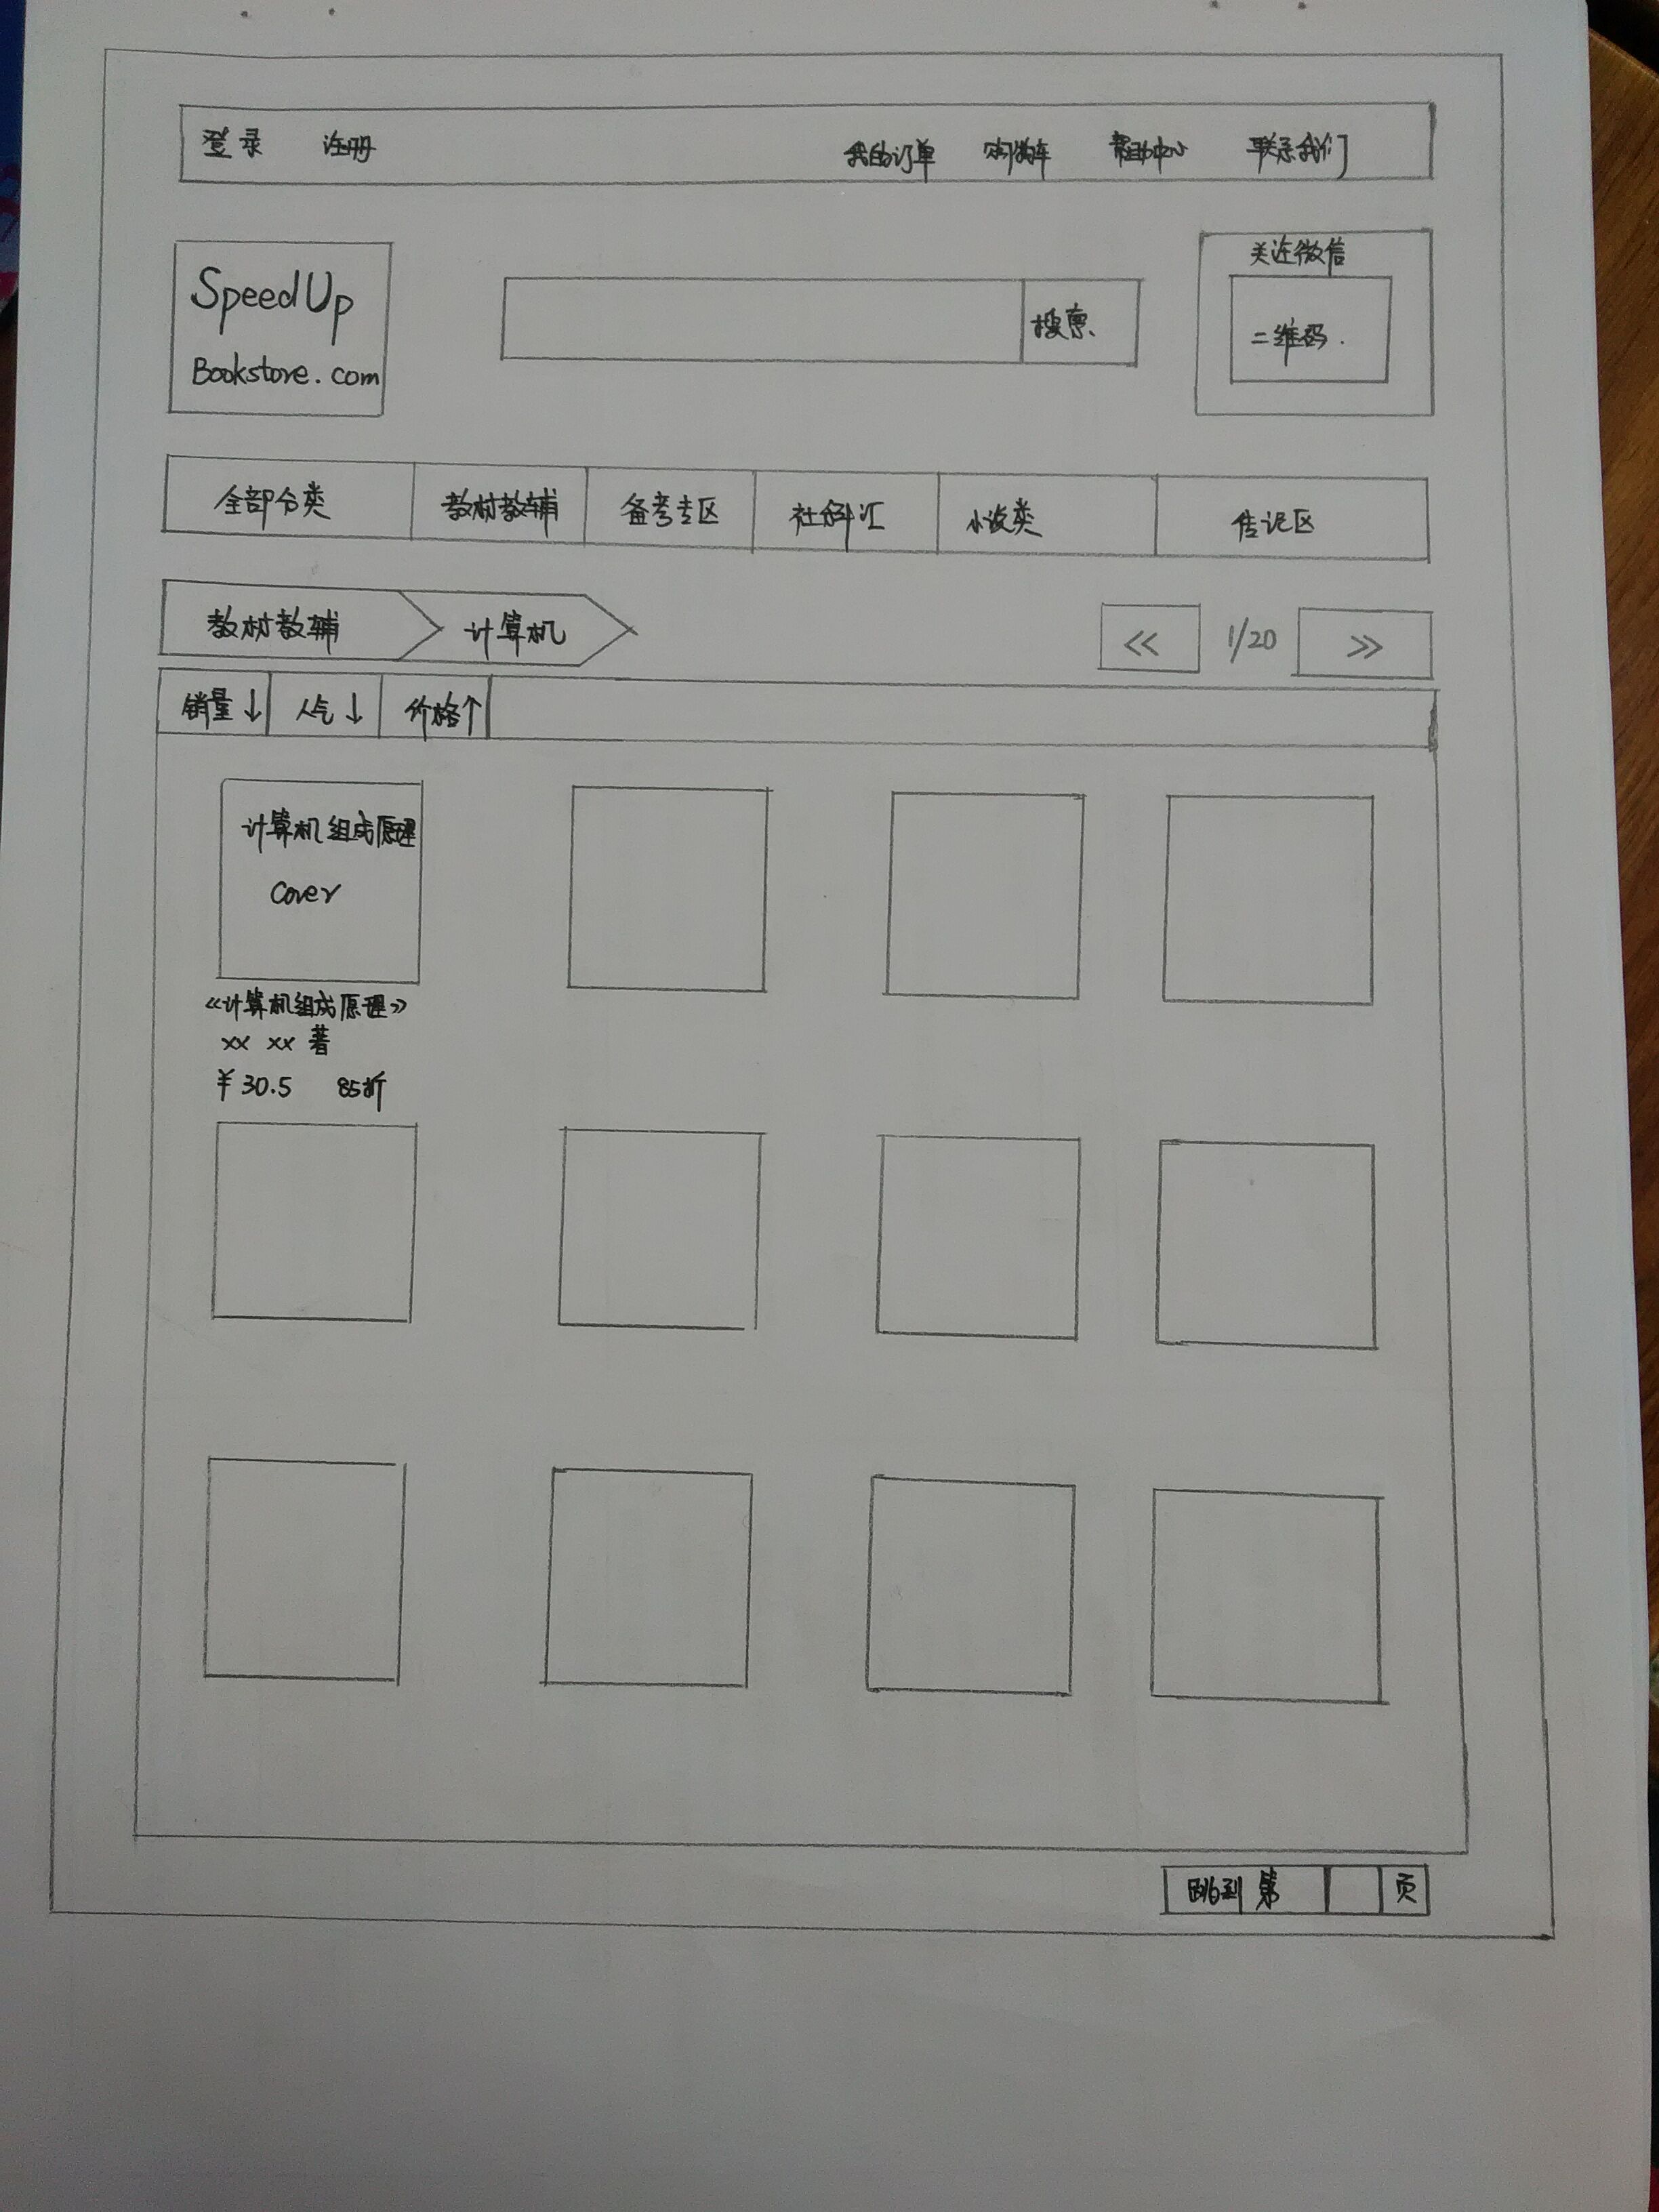 登录 注册 我的订单 购物车 帮助中心 联系我们
SpeedUp
Bookstore.com
搜索
关注微信
二维码.
全部分类 教材教辅 备考专区 社科汇 小说类 传记区
教材教辅 计算机 << 1/20 >>
销量↓ 人气↓ 价格↑
计算机组成原理
Cover
《计算机组成原理》
xx xx 著
¥30.5 85折
跳到 第 页